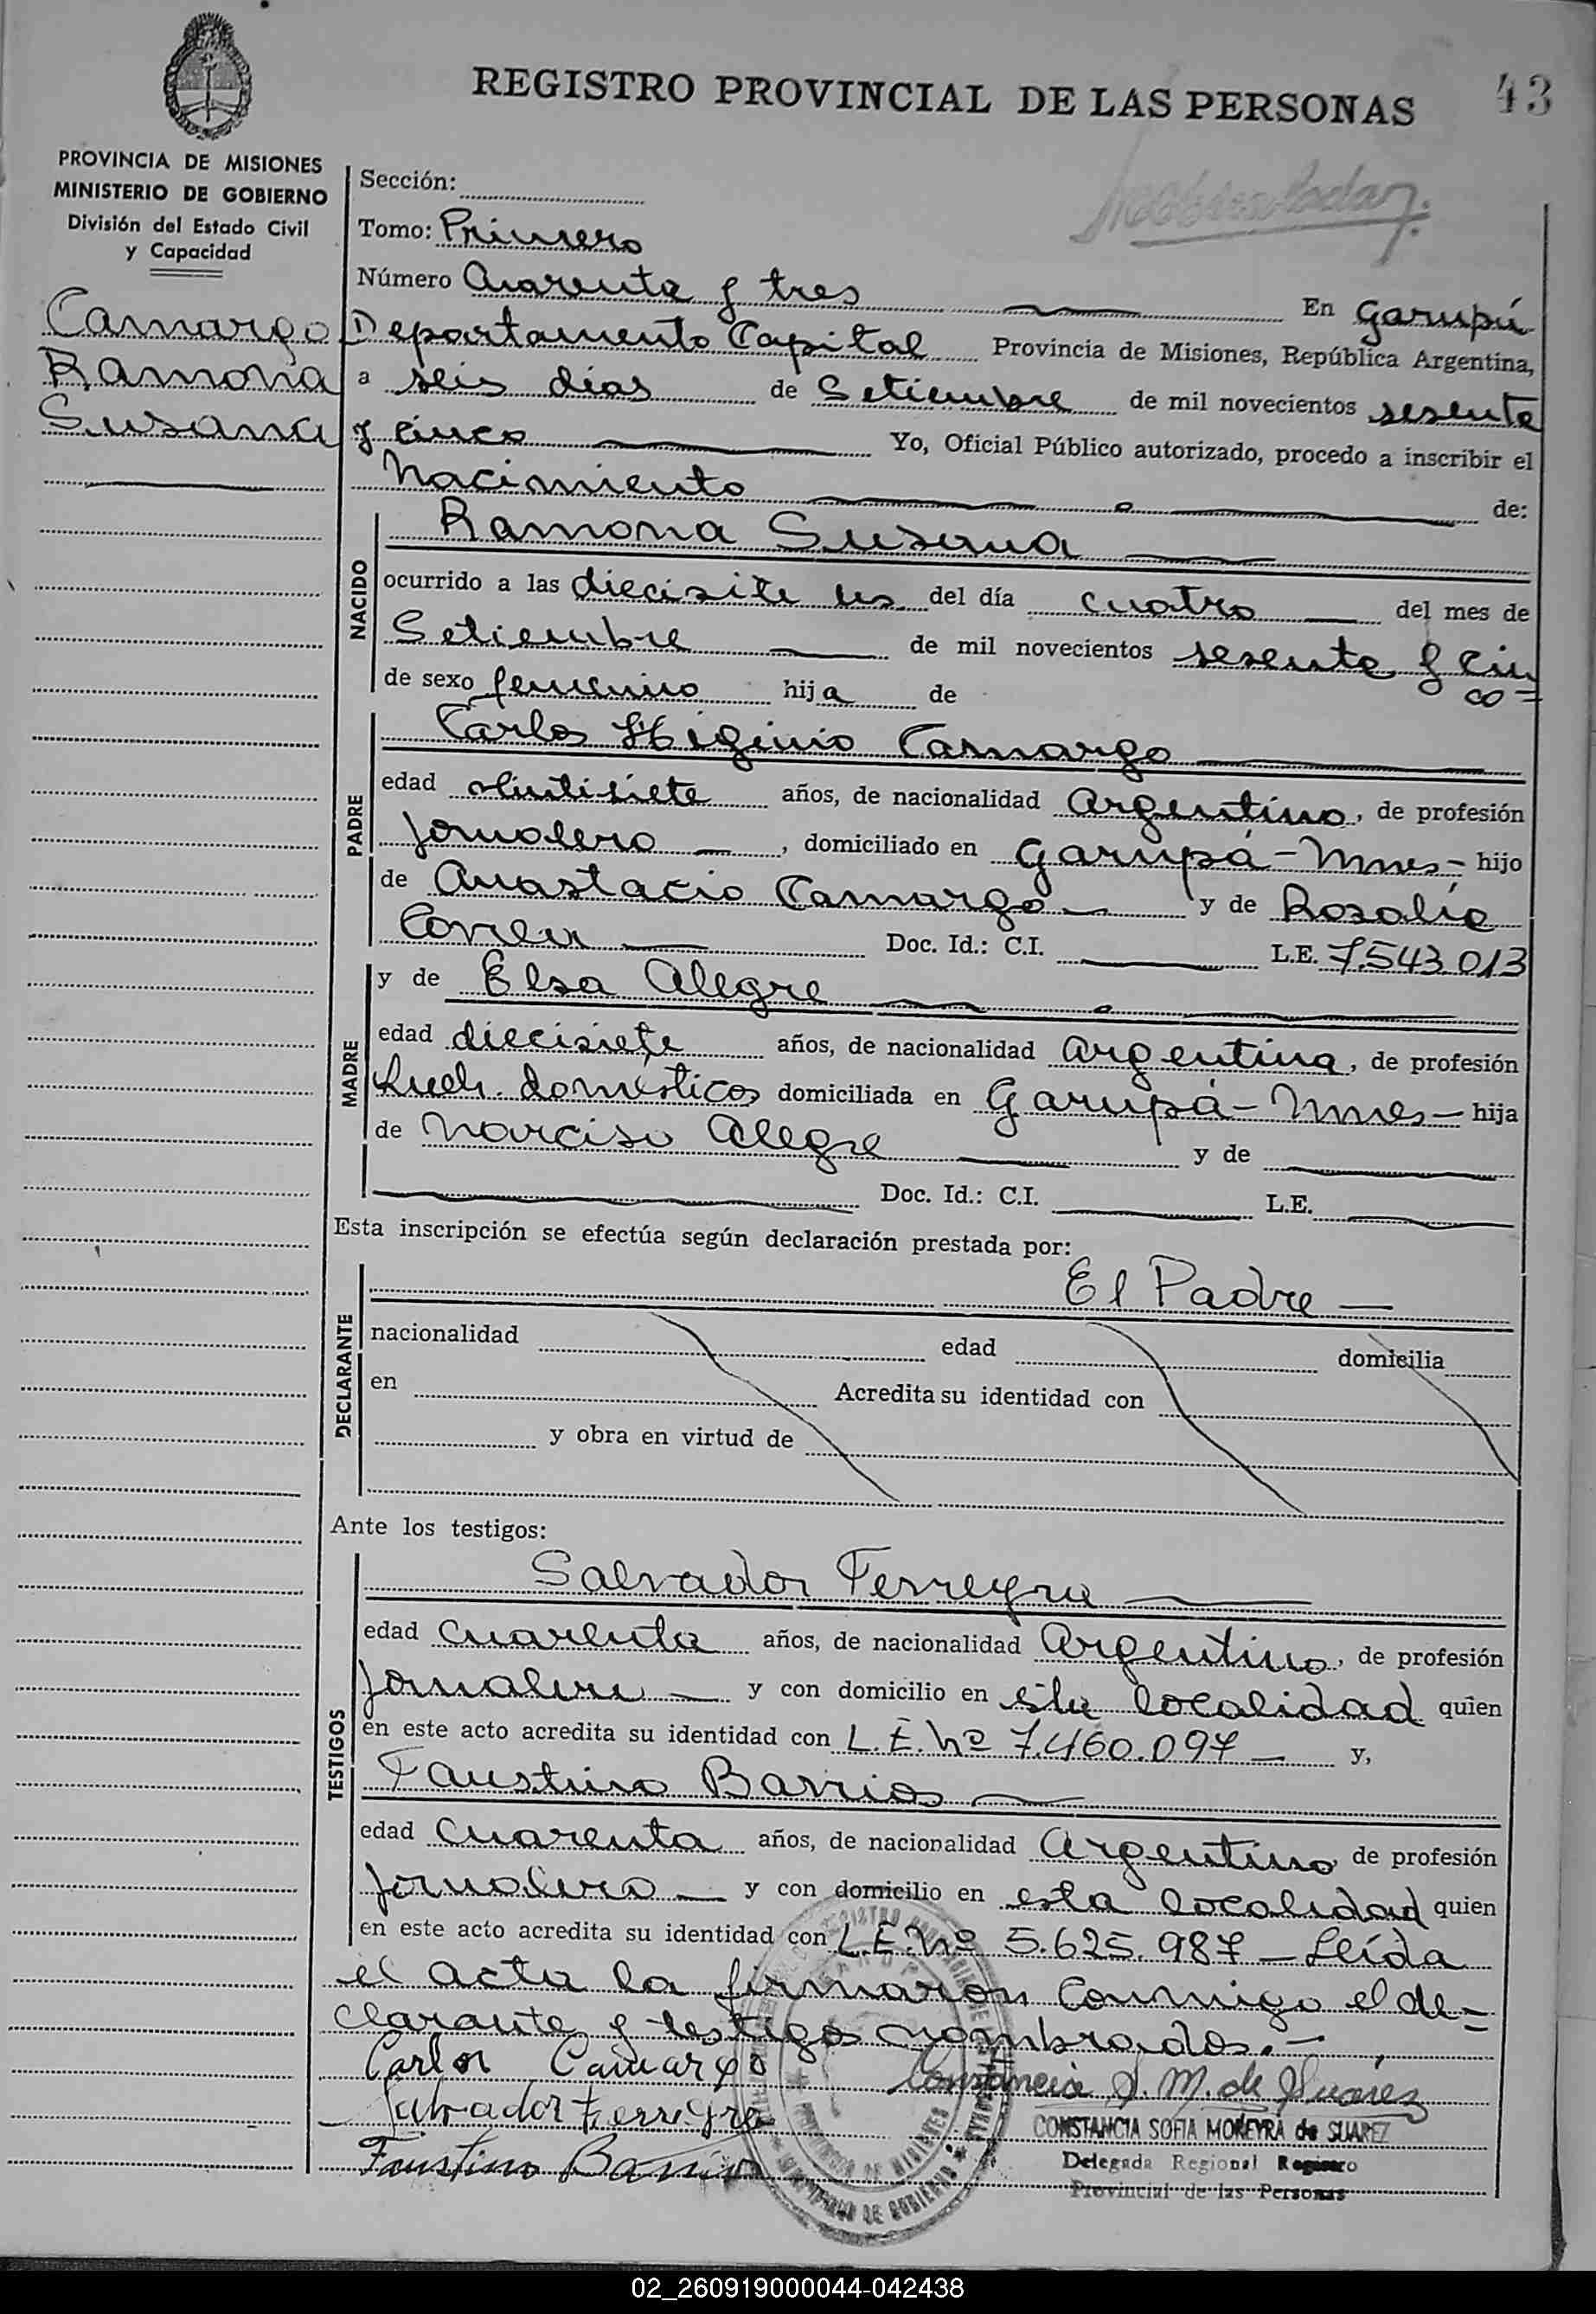 REGISTRO PROVINCIAL DE LAS PERSONAS
43
PROVINCIA DE MISIONES
MINISTERIO DE GOBIERNO
División del Estado Civil
y Capacidad
Camargo
Ramona
Susana
Sección:
Tomo: Primero
Número Cuarenta y tres En Garupá
Departamento Capital Provincia de Misiones, República Argentina,
a seis días de Setiembre de mil novecientos sesenta
y cinco Yo, Oficial Público autorizado, procedo a inscribir el
Nacimiento de:
NACIDO
Ramona Susana
ocurrido a las diecisite hs. del día cuatro del mes de
Setiembre de mil novecientos sesenta y cin
co=
de sexo femenino hija de
PADRE
Carlos Higinio Camargo
edad veintisiete años, de nacionalidad Argentino, de profesión
Jornalero, domiciliado en Garupá - Mnes - hijo
de Anastacio Camargo y de Rosalía
Correa Doc. Id.: C.I. L.E. 7.543.013
MADRE
y de Elsa Alegre
edad diecisiete años, de nacionalidad Argentina, de profesión
Queh. domésticos domiciliada en Garupá - Mnes - hija
de Narciso Alegre y de
Doc. Id.: C.I. L.E.
Esta inscripción se efectúa según declaración prestada por:
DECLARANTE
El Padre
nacionalidad edad domicilia
en Acredita su identidad con
y obra en virtud de
Ante los testigos:
TESTIGOS
Salvador Ferreyra
edad Cuarenta años, de nacionalidad Argentino, de profesión
Jornalero y con domicilio en esta localidad quien
en este acto acredita su identidad con L.E. Nº 7.460.097 y,
Faustino Barrios
edad Cuarenta años, de nacionalidad Argentino de profesión
Jornalero y con domicilio en esta localidad quien
en este acto acredita su identidad con L.E. Nº 5.625.987 - Leída
el acta la firmaron conmigo el de=
clarante y testigos nombrados.-
Carlos Camargo
Constancia S. M. de Suarez
Salvador Ferreyra
CONSTANCIA SOFIA MOREYRA de SUAREZ
Faustino Barrios
Delegada Regional Registro
Provincial de las Personas
02_260919000044-042438